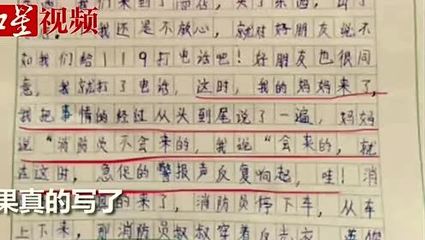 红星视频
我还是不放心，就对好朋友说不
如我们给119打电话吧！好朋友也很同
意，我就打了电话，这时，我的妈妈来了，
我把事情的经过从头到尾说了一遍，妈妈
说“消防员不会来的，我说“会来的，就
在这时，急促的警报声反复响起，哇！消
的来了，消防员停下车，从车
果真的写了
上下来，那消防员叔叔穿着反光衣